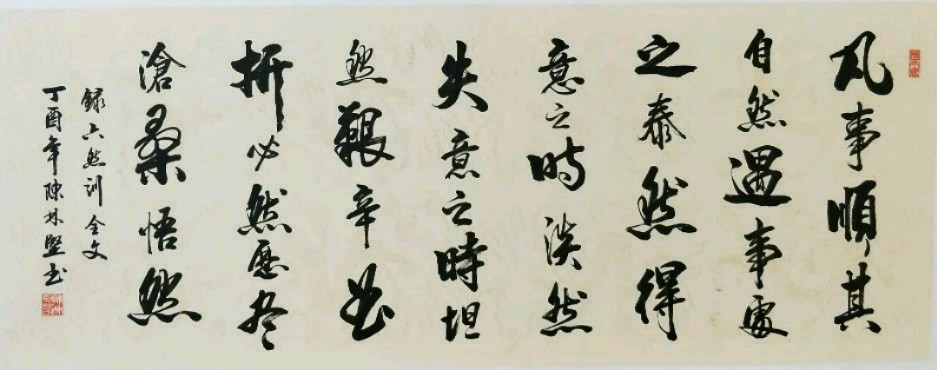 凡事順其
自然遇事處
之泰然得
意之時淡然
失意之時坦
然艱辛曲
折必然歷尽
滄桑悟然
録六然训全文
丁酉年陈林坚书